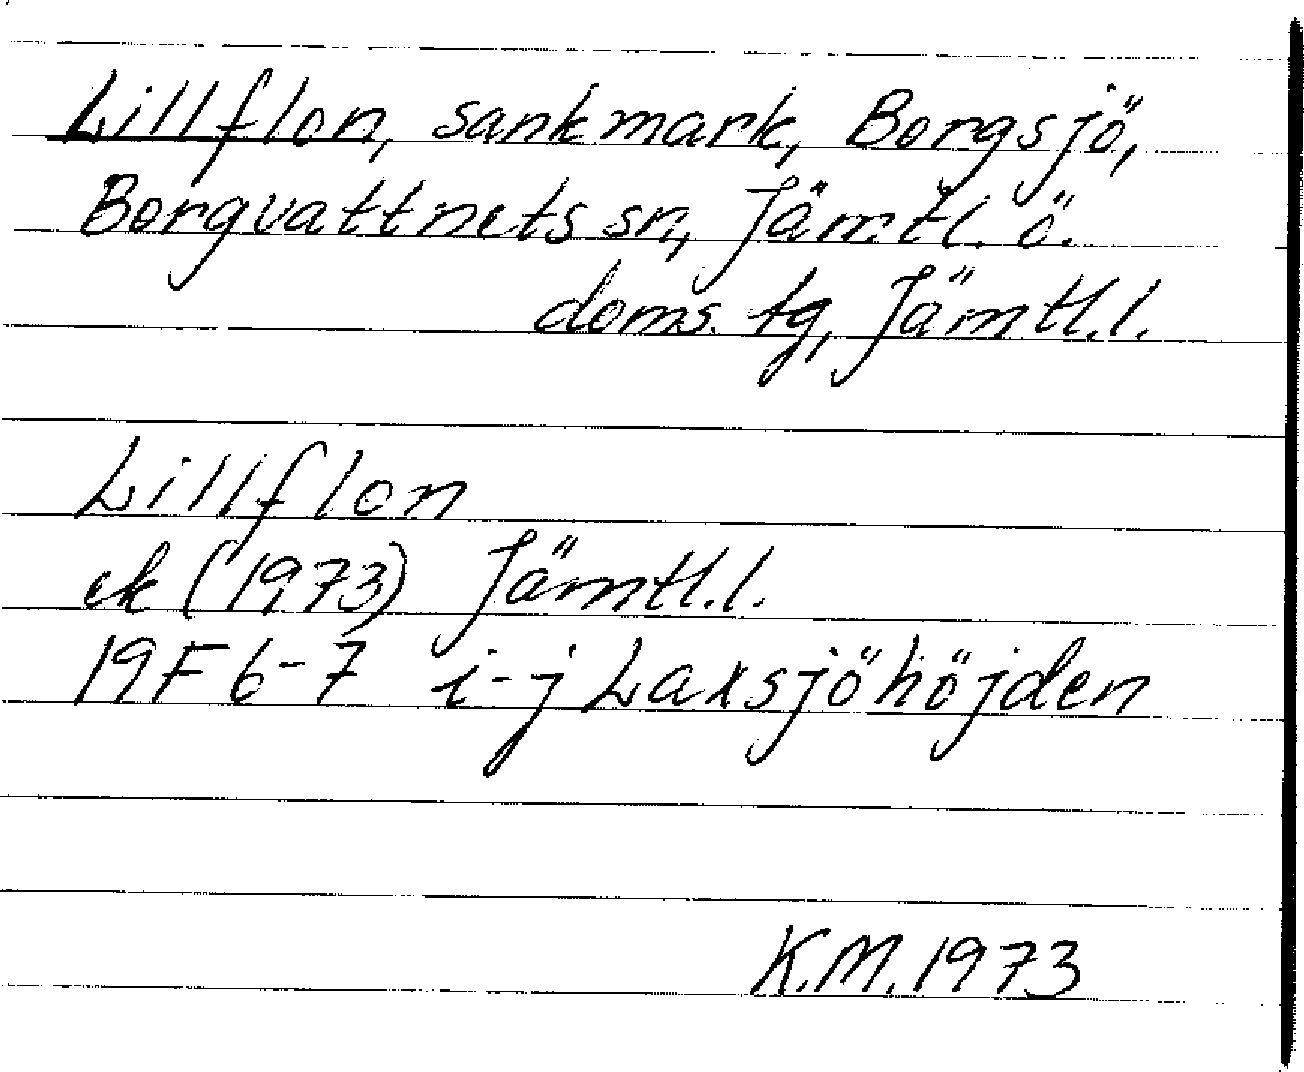 Lillflon, sankmark, Borgsjö,
Borgvattnets sn, Jämtl. ö.
doms. tg, Jämtl.l.
Lillflon
ek (1973) Jämtl.l.
19F 6-7 i-j Laxsjöhöjden
K.M. 1973